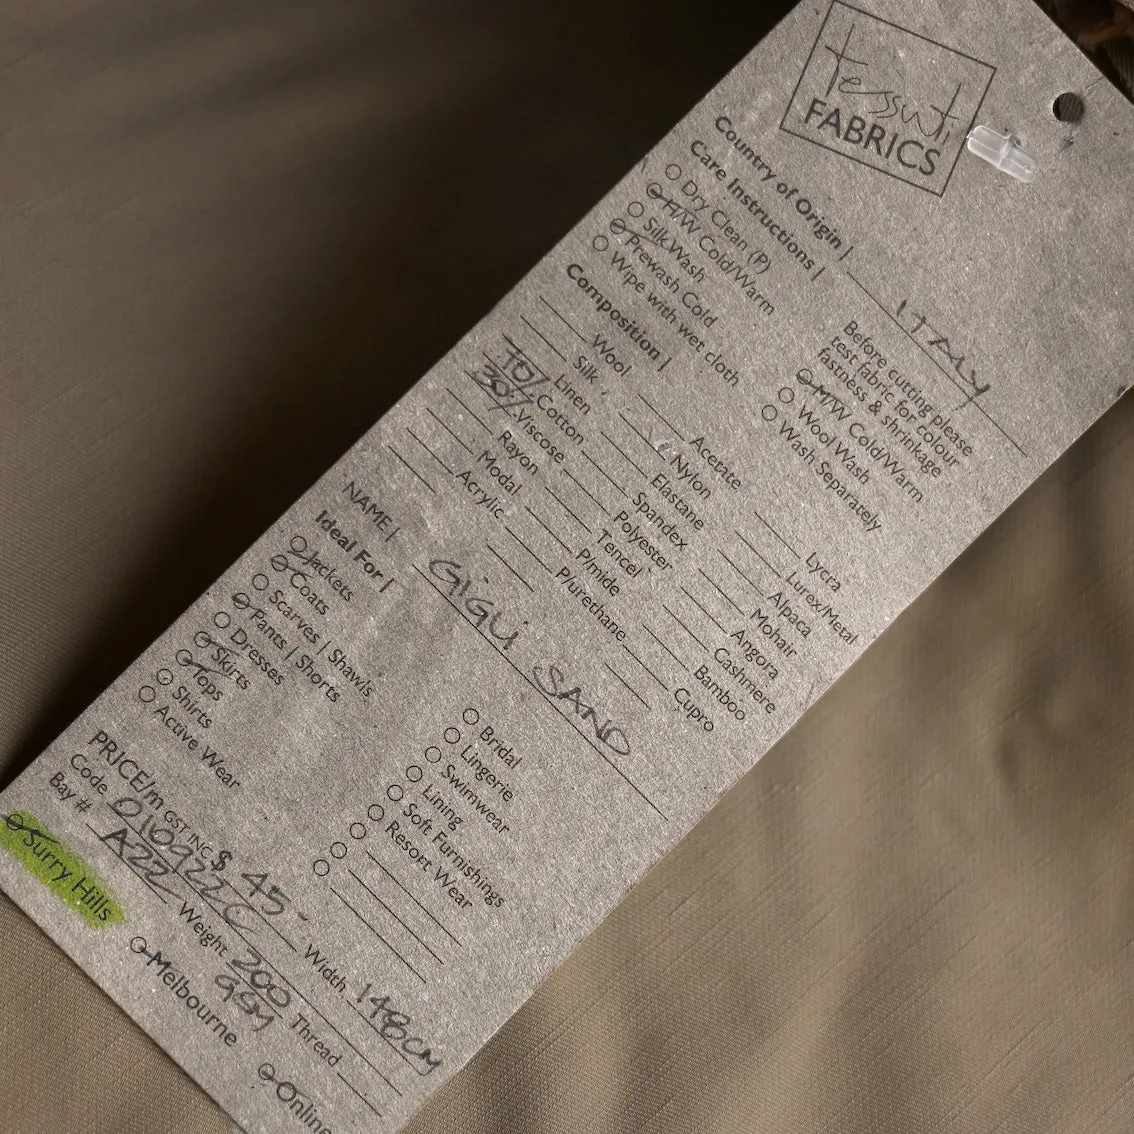 Tessuti
FABRICS
Country of Origin | ITALY
Care Instructions |
Before cutting please
test fabric for colour
fastness & shrinkage
Dry Clean (P)
H/W Cold/Warm M/W Cold/Warm
Silk Wash Wool Wash
Prewash Cold Wash Separately
Wipe with wet cloth
Composition |
Wool Acetate Lycra
Silk Nylon Lurex/Metal
Linen Elastane Alpaca
70/ Cotton Spandex Mohair
30% Viscose Polyester Angora
Rayon Tencel Cashmere
Modal P/mide Bamboo
Acrylic P/urethane Cupro
NAME | GIGU SAND
Ideal For |
Jackets Bridal
Coats Lingerie
Scarves | Shawls Swimwear
Pants | Shorts Lining
Dresses Soft Furnishings
Skirts Resort Wear
Tops
Shirts
Active Wear
PRICE/m GST INC $ 45-
Code 010922C Width 148CM
Bay # A22 Weight 200 GSM Thread
Surry Hills Melbourne Online